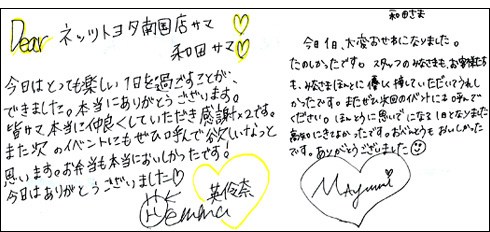 Dear ネッツトヨタ南国店サマ
和田サマ
今日はとっても楽しい1日を過ごすことが、
できました。本当にありがとうございます。
皆サマ本当に仲良くしていただき感謝×2です。
また次のイベントにもぜひ呼んで欲しいなっと
思います。お弁当も本当においしかったです!
今日はありがとうございました♡
emma
英伶奈
和田さま
今日1日、大変お世わになりました。
たのしかったです。スタッフのみなさまも、お客様方
も、みなさまほんとに優しく接していただいてうれし
かったです。またぜひ次回のイベントには呼んで
ください。ほんとうに思いでになる1日となりました
高知にきてよかったです。おべんとうもおいしかった
です。ありがとうございました☺
MAyumi